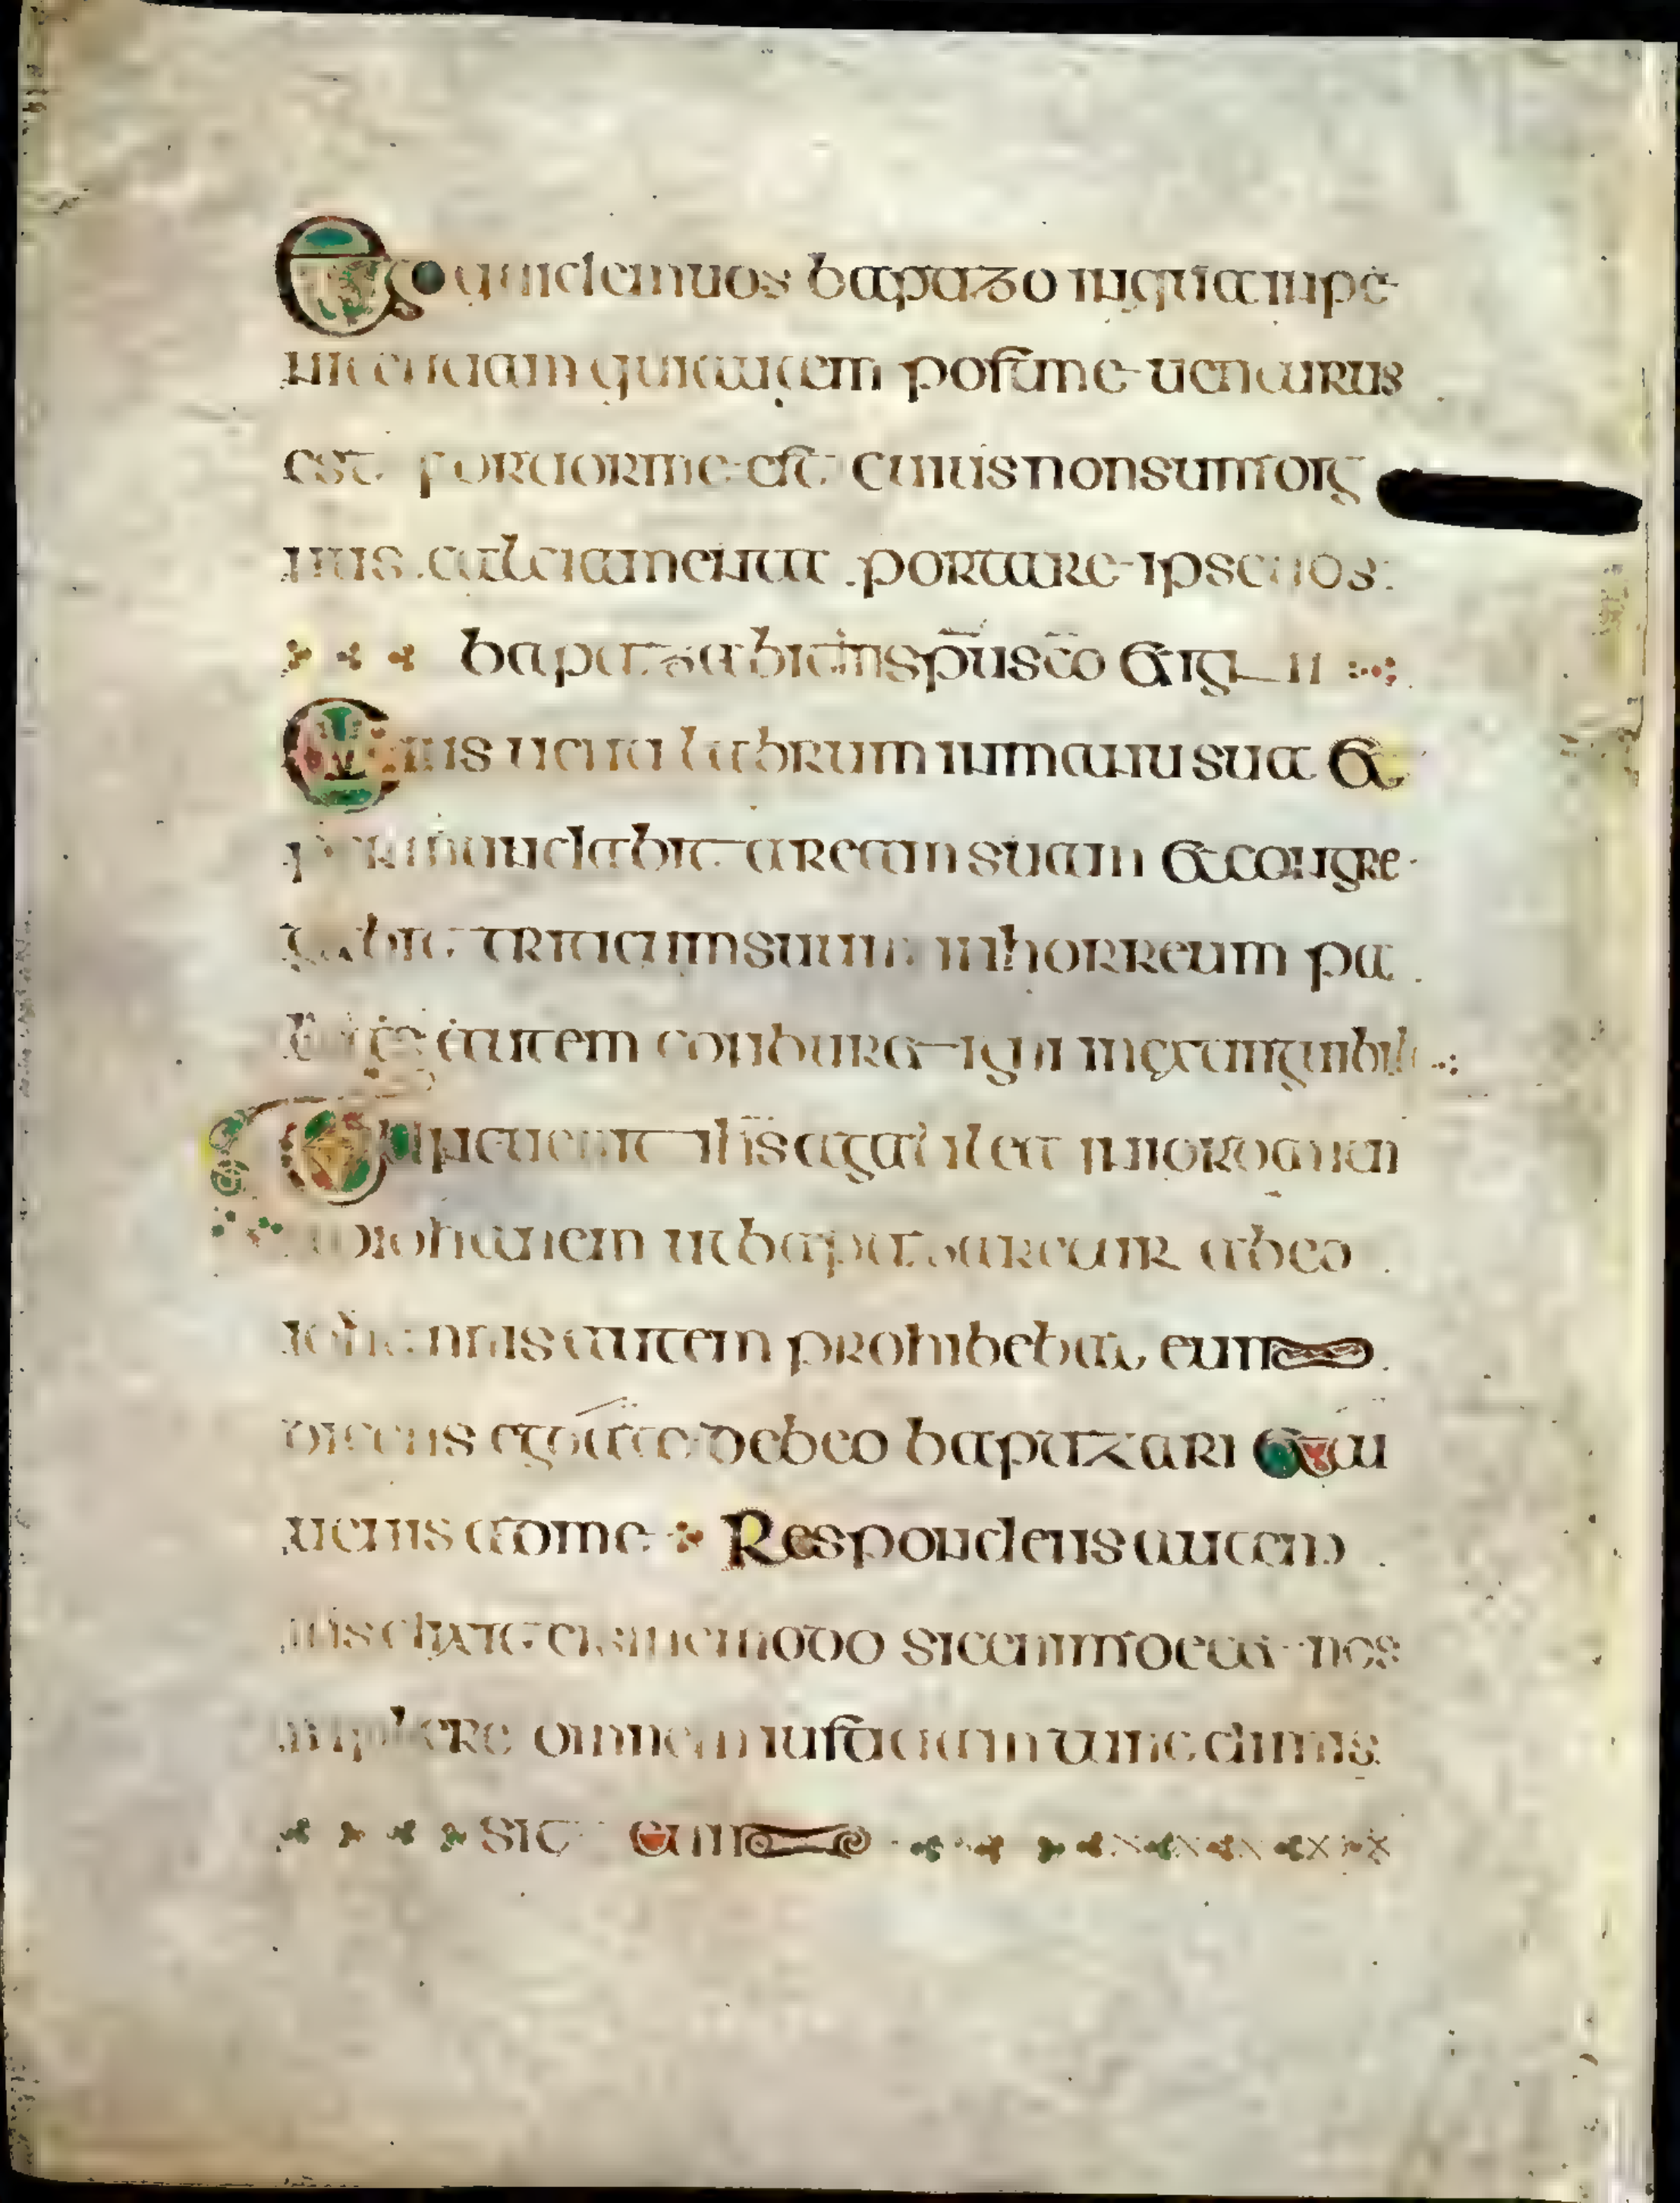 Ego quidem uos baptizo in aqua in pe
nitentiam qui autem post me uenturus
est fortior me est cuius non sum dig
nus calciamenta portare ipse uos
baptizabit in spu sco & igni
Cuius uentilabrum in manu sua &
permundabit aream suam & congre
gabit triticum suum in horreum pa
leas autem conburet igni inextinguibili
Tunc uenit ihs a galilea in iordanen
ad iohannem ut baptizaretur ab eo
iohannis autem prohibebat eum
dicens ego a te debeo baptizari & tu
uenis ad me Respondens autem
ihs dixit ei sine modo sic enim decet nos
implere omnem iustitiam tunc dimis
sit eum